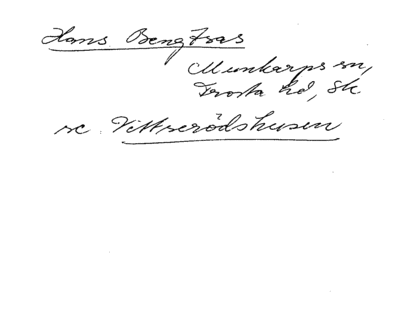 Hans Bengtsas
Munkarps sn,
Frosta hd, Sk.
se. Vittserödshusen